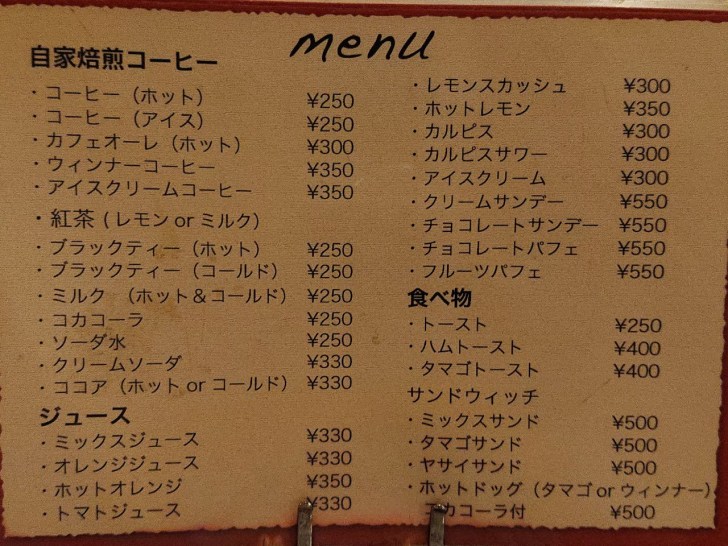 menu
自家焙煎コーヒー
・コーヒー（ホット） ¥250
・コーヒー（アイス） ¥250
・カフェオーレ（ホット） ¥300
・ウィンナーコーヒー ¥350
・アイスクリームコーヒー ¥350
・紅茶（レモン or ミルク）
・ブラックティー（ホット） ¥250
・ブラックティー（コールド） ¥250
・ミルク （ホット＆コールド） ¥250
・コカコーラ ¥250
・ソーダ水 ¥250
・クリームソーダ ¥330
・ココア（ホット or コールド） ¥330
ジュース
・ミックスジュース ¥330
・オレンジジュース ¥330
・ホットオレンジ ¥350
・トマトジュース ¥330
・レモンスカッシュ ¥300
・ホットレモン ¥350
・カルピス ¥300
・カルピスサワー ¥300
・アイスクリーム ¥300
・クリームサンデー ¥550
・チョコレートサンデー ¥550
・チョコレートパフェ ¥550
・フルーツパフェ ¥550
食べ物
・トースト ¥250
・ハムトースト ¥400
・タマゴトースト ¥400
サンドウィッチ
・ミックスサンド ¥500
・タマゴサンド ¥500
・ヤサイサンド ¥500
・ホットドッグ（タマゴ or ウィンナー）
コカコーラ付 ¥500